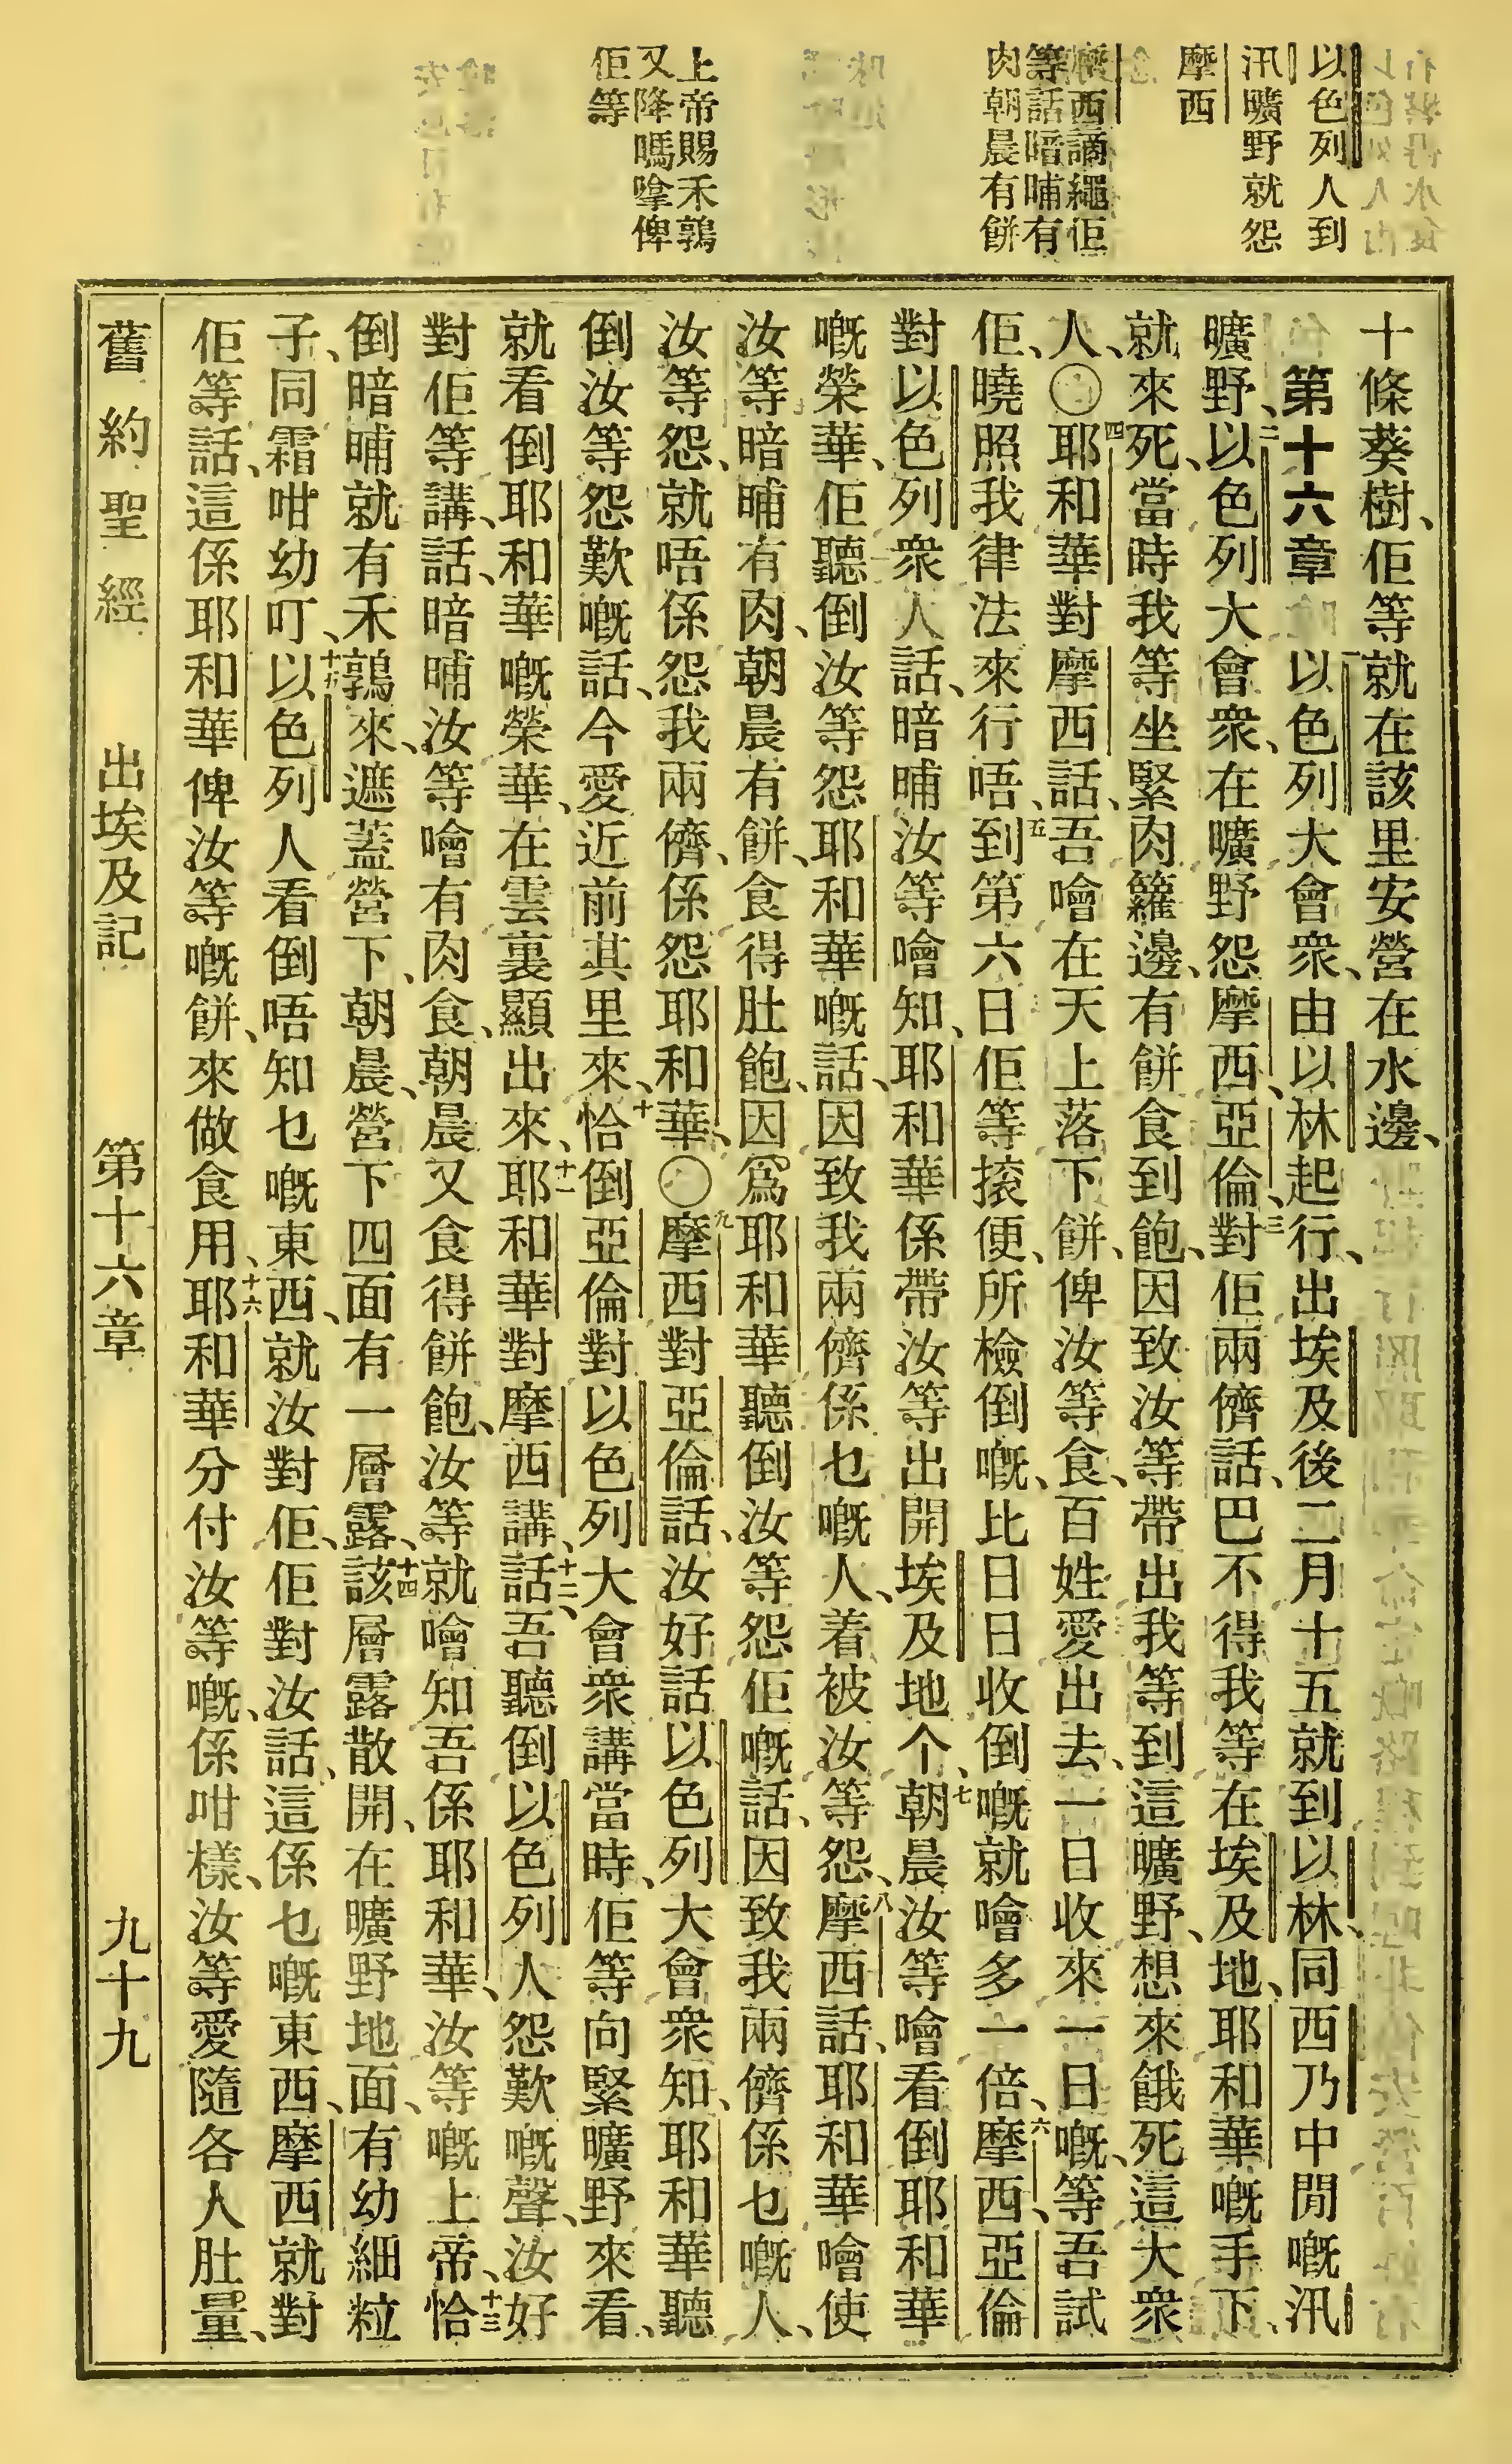 以色列人到
汛曠野就怨
摩西
摩西諭繩佢
等話暗晡有
肉朝晨有餅
上帝賜禾鶉
又降嗎嗱俾
佢等
十條葵樹、佢等就在該里安營在水邊、
第十六章 一以色列大會衆、由以林起行、出埃及後二月十五就到以林、同西乃中閒嘅汛
曠野、二以色列大會衆、在曠野怨摩西、亞倫、三對佢兩儕話、巴不得我等在埃及地、耶和華嘅手下、
就來死、當時我等坐緊肉籮邊、有餅食到飽、因致汝等帶出我等到這曠野、想來餓死這大衆
人、〇四耶和華對摩西話、吾噲在天上落下餅、俾汝等食、百姓愛出去、一日收來一日嘅、等吾試
佢、曉照我律法來行唔、五到第六日佢等㨆便、所檢倒嘅、比日日收倒嘅就噲多一倍、六摩西、亞倫
對以色列衆人話、暗晡汝等噲知、耶和華係帶汝等出開埃及地个、七朝晨汝等噲看倒耶和華
嘅榮華、佢聽倒汝等怨耶和華嘅話、因致我兩儕係乜嘅人、着被汝等怨、八摩西話、耶和華噲使
汝等暗晡有肉、朝晨有餅、食得肚飽、因爲耶和華聽倒汝等怨佢嘅話、因致我兩儕係乜嘅人、
汝等怨、就唔係怨我兩儕、係怨耶和華、〇九摩西對亞倫話、汝好話以色列大會衆知、耶和華聽
倒汝等怨歎嘅話、今愛近前其里來、十恰倒亞倫對以色列大會衆講當時、佢等向緊曠野來看、
就看倒耶和華嘅榮華、在雲裏顯出來、十一耶和華對摩西講、話、十二吾聽倒以色列人怨歎嘅聲、汝好
對佢等講、話、暗晡汝等噲有肉食、朝晨又食得餅飽、汝等就噲知吾係耶和華、汝等嘅上帝、十三恰
倒暗晡就有禾鶉來、遮蓋營下、朝晨、營下四面有一層露、十四該層露散開、在曠野地面、有幼細粒
子、同霜咁幼叮、十五以色列人看倒唔知乜嘅東西、就汝對佢、佢對汝話、這係乜嘅東西、摩西就對
佢等話、這係耶和華俾汝等嘅餅、來做食用、十六耶和華分付汝等嘅、係咁樣、汝等愛隨各人肚量、
舊約聖經 出埃及記 第十六章 九十九